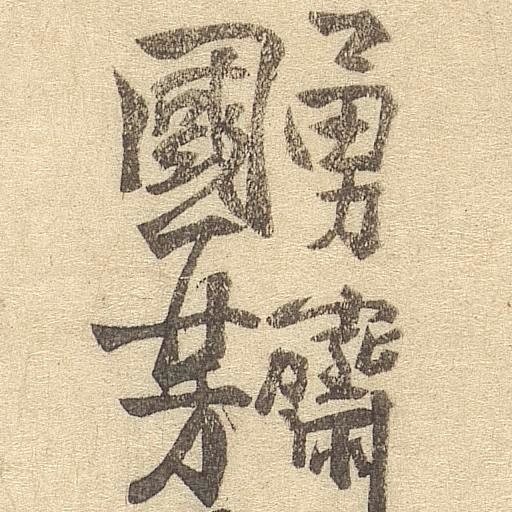 勇齋
國芳